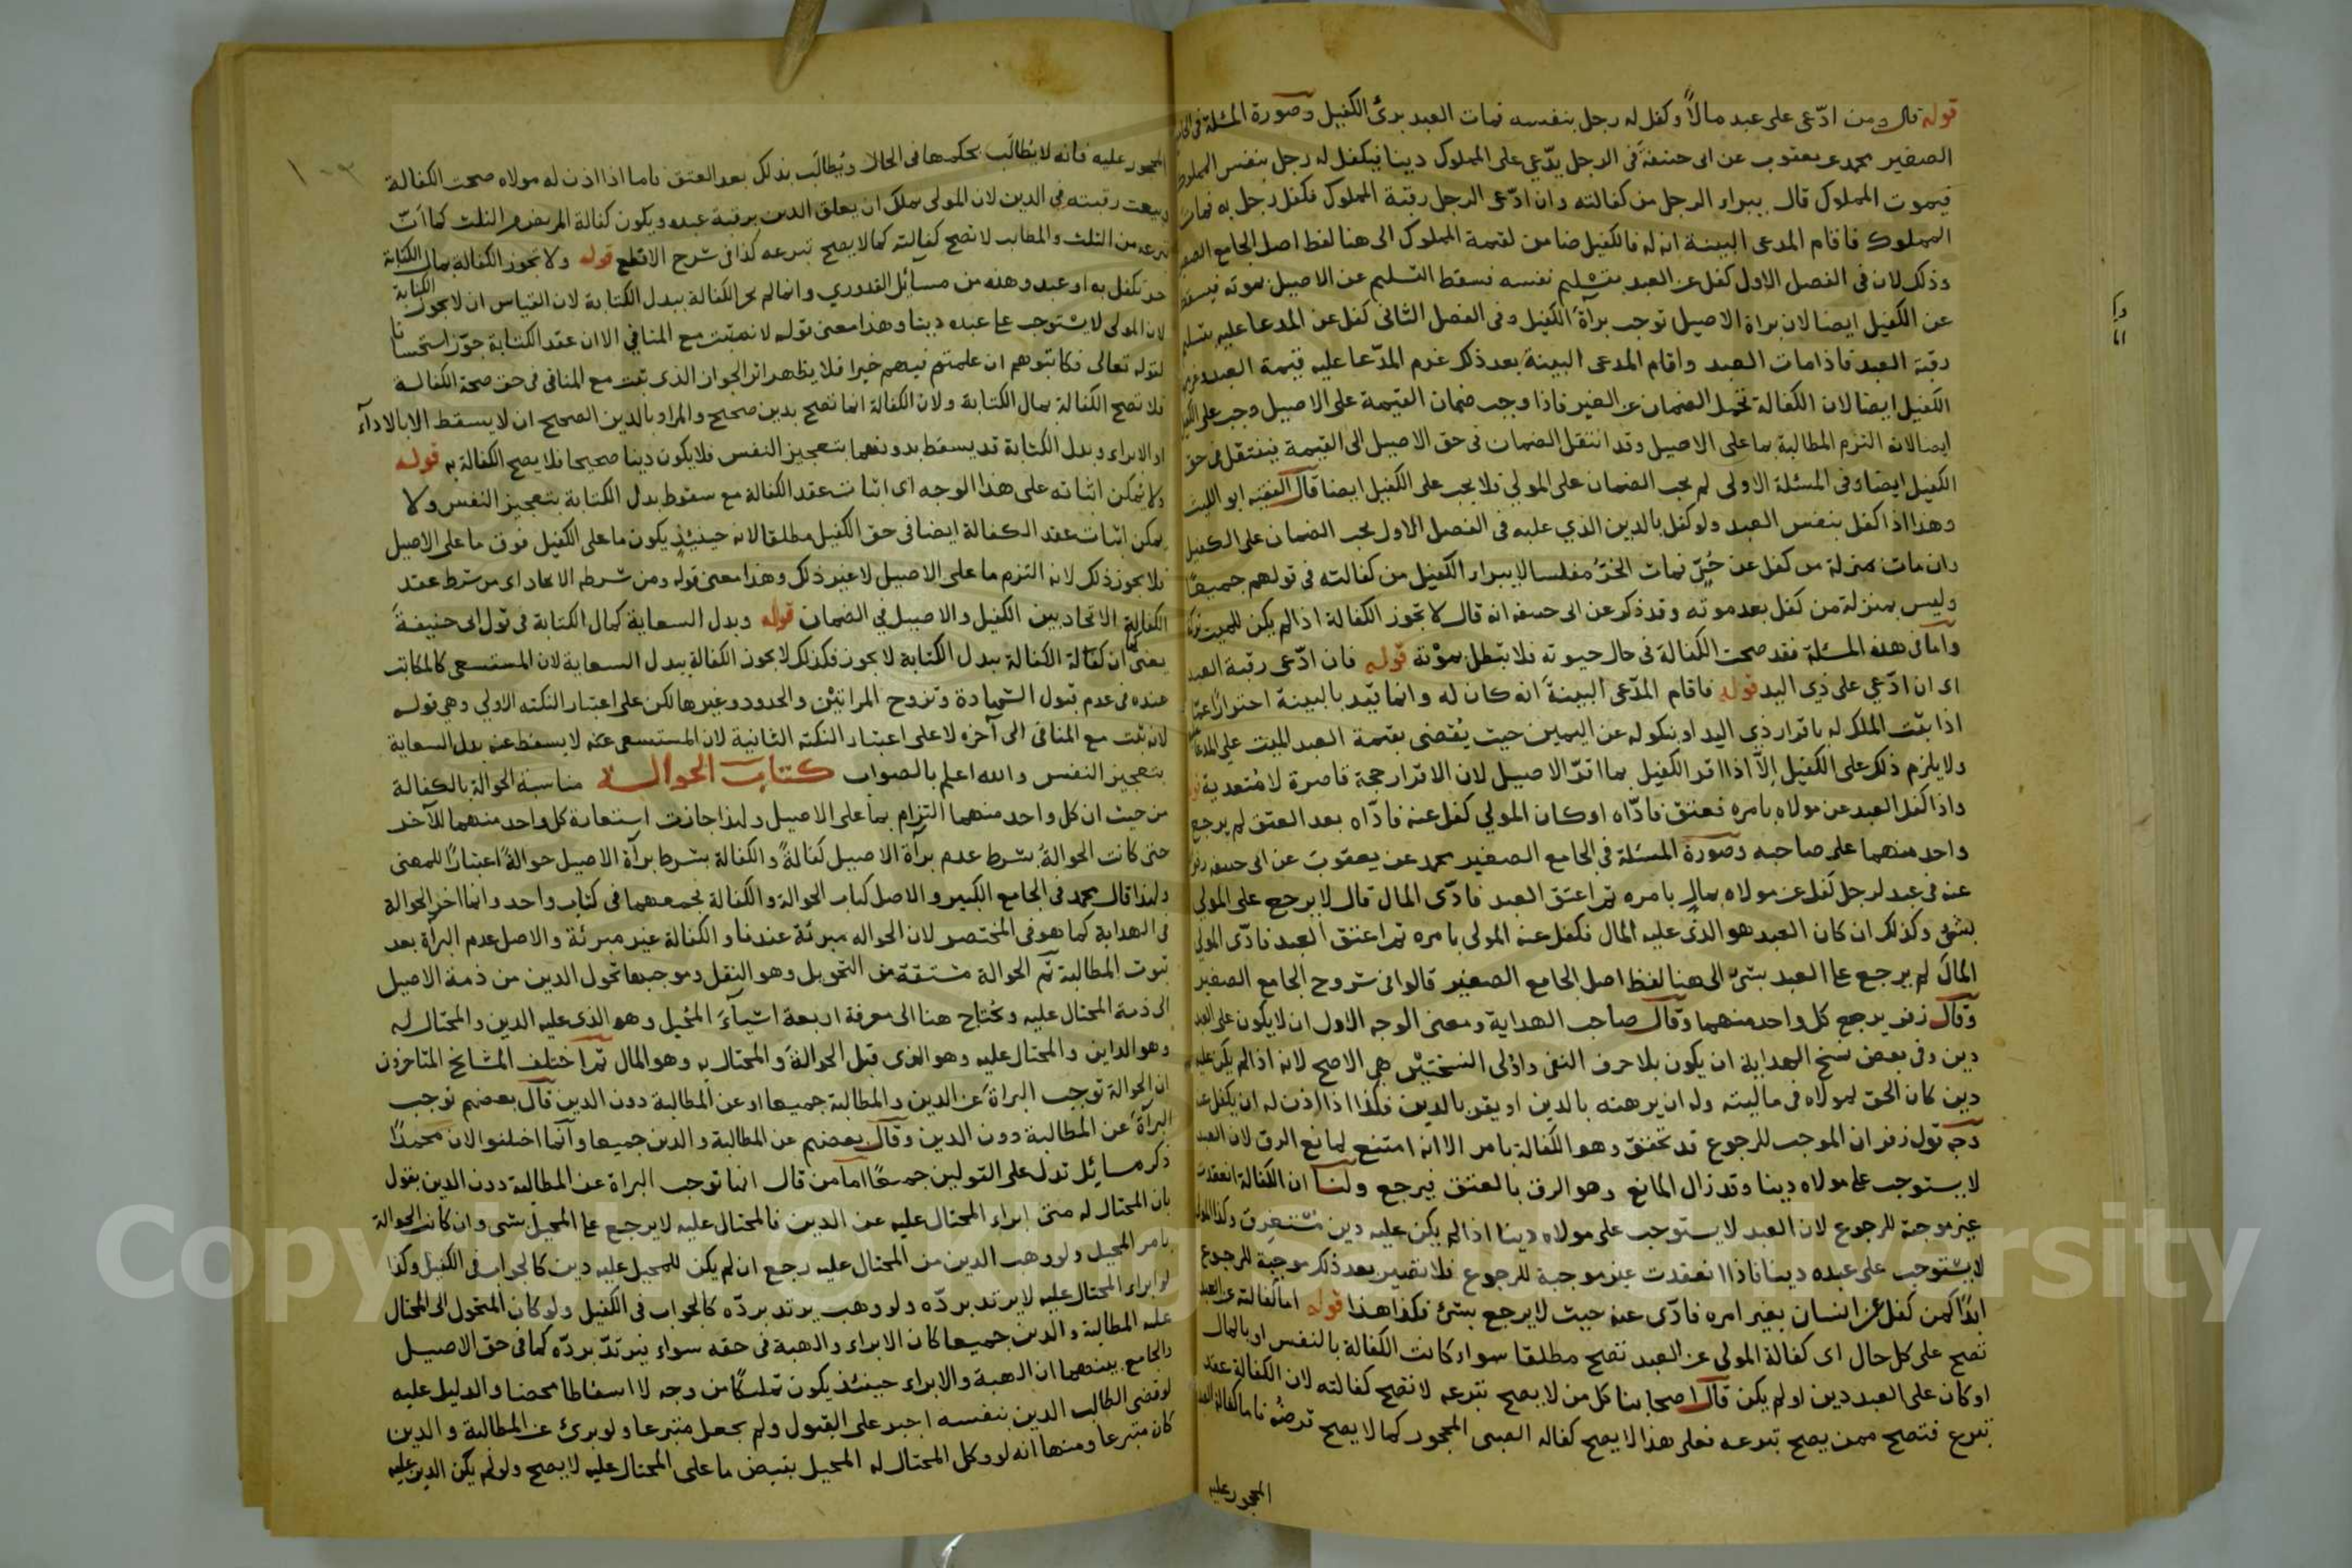 قوله قال ومن ادّعى على عبد مالاً وكفل له رجل بنفسه فمات العبد برئ الكفيل وصورة المسئلة في الجامع
الصغير محمد عن يعقوب عن ابي حنيفة في الرجل يدّعي على المملوك دينا فيكفل له رجل بنفس المملوك
فيموت المملوك قال يبراء الرجل من كفالته وان ادّعى الرجل رقبة المملوك فكفل رجل به فمات
المملوك فاقام المدعى البينة انه له فالكفيل ضامن لقيمة المملوك الى هنا لفظ اصل الجامع الصغير
وذلك لان في الفصل الاول كفل عن العبد بتسليم نفسه فسقط التسليم عن الاصيل بموته فيسقط
عن الكفيل ايضا لان براة الاصيل توجب برآة الكفيل وفى الفصل الثانى كفل عن المدعا عليه بتسليم
رقبة العبد فاذا مات العبد واقام المدعى البينة بعد ذلك غرم المدّعا عليه قيمة العبد
الكفيل ايضا لان الكفالة تحمل الضمان عن الغير فاذا وجب ضمان القيمة على الاصيل وجب على الكفيل
ايضا لانه التزم المطالبة بما على الاصيل وقد انتقل الضمان فى حق الاصيل الى القيمة فينتقل فى حق
الكفيل ايضا وفى المسئلة الاولى لم يجب الضمان على المولي فلا يجب على الكفيل ايضا قال الفقيه ابو الليث
وهذا اذا كفل بنفس العبد ولو كفل بالدين الذي عليه فى الفصل الاول يجب الضمان على الكفيل
وان مات بمنزلة من كفل عن حُرّ فمات الحُرّ مفلسا لا يبراء الكفيل من كفالته فى قولهم جميعًا
وليس بمنزلة من كفل بعد موته وقد ذكر عن ابى حنيفه انه قال لا تجوز الكفالة اذا لم يكن للميت تركة
واما فى هذه المسئلة فقد صحت الكفالة فى حال حيوته فلا تبطل بموته قوله فان ادّعى رقبة العبد
اى ان ادّعي على ذي اليد قوله فاقام المدّعى البينةَ انه كان له وانما قيّد بالبينة احترازًا عمّا
اذا ثبت الملك له باقرار ذي اليد او بنكوله عن اليمين حيث يُقضى بقيمة العبد الميت على المدعا
ولا يلزم ذلك على الكفيل إلاّ اذا اقر الكفيل بما اقرّ الاصيل لان الاقرار حجة قاصرة لا مُتعدية
واذا كفل العبد عن مولاه بامره فعتق فادّاه او كان المولي كفل عنه فادّاه بعد العتق لم يرجع
واحد منهما على صاحبه وصورة المسئلة فى الجامع الصغير محمد عن يعقوبَ عن ابى حنيفه رضى
عنه فى عبد لرجل كفل عن مولاه بمال بامره ثم اعتق العبد فادّى المال قال لا يرجع على المولى
بشئ وكذلك ان كان العبد هو الذى عليه المال فكفل عنه المولى بامره ثم اعتق العبد فادّى المولى
المال لم يرجع على العبد بشئ الى هنا لفظ اصل الجامع الصغير قالوا فى شروح الجامع الصغير
وقال زفر يرجع كل واحد منهما وقال صاحب الهداية ومعنى الوجه الاول ان لا يكون على العبد
دين وفى بعض نسخ الهداية ان يكون بلا حرف النفى واولى النسختين هي الاصح لانه اذا لم يكن عليه
دين كان الحق لمولاه فى ماليته وله ان يرهنه بالدين او يقر بالدين فكذا اذا اذن له ان يكفل عنه
وجه قول زفر ان الموجب للرجوع قد تحقق وهو الكفالة بامر الا انه امتنع لمانع الرق لان العبد
لا يستوجب على مولاه دينا وقد زال المانع وهو الرق بالعتق فيرجع ولنا ان الكفالة انعقدت
غير موجبة للرجوع لان العبد لا يستوجب على مولاه دينا اذا لم يكن عليه دين مُستغرِق وكذا المولى
لا يستوجب على عبده دينا فاذا انعقدت غير موجبة للرجوع فلا تصير بعد ذلك موجبة للرجوع
ابدًا كمن كفل عن انسان بغير امره فادّى عنه حيث لا يرجع بشئ فكذا هذا قوله اما كفالته عن العبد
تصح على كل حال اى كفالة المولى عن العبد تصح مطلقا سواء كانت الكفالة بالنفس او بالمال
او كان على العبد دين او لم يكن قال اصحابنا كل من لا يصح تبرعه لا تصح كفالته لان الكفالة عقد
تبرع فتصح ممن يصح تبرعه فعلى هذا لا يصح كفاله الصبى المحجور كما لا يصح قرضُه فاما كفالة العبد
المحجور عليه
المحجور عليه فانه لا يُطالَب بحكمها فى الحال ويُطالَب بذلك بعد العتق فاما اذا اذن له مولاه صحت الكفالة
وبيعت رقبته فى الدين لان المولى يملك ان يعلق الدين برقبة عبده ويكون كفالة المريض من الثلث كما انّ
تبرعه من الثلث والمكاتب لا تصح كفالته كما لا يصح تبرعه كذا فى شرح الاقطع قوله ولا تجوز الكفالة بمال الكتابة
حر تكفل به او عبد وهذه من مسائل القدوري وانما لم يجز الكفالة ببدل الكتابة لان القياس ان لا يجوز الكتابة
لان المولى لا يستوجب على عبده دينا وهذا معنى قوله لانه ثبت مع المنافي الا ان عقد الكتابة جوّز استحسانا
لقوله تعالى فكاتبوهم ان علمتم فيهم خيرا فلا يظهر اثر الجواز الذى ثبت مع المنافى فى حق صحة الكفالة
فلا تصح الكفالة بمال الكتابة ولان الكفالة انما تصح بدين صحيح والمراد بالدين الصحيح ان لا يسقط الا بالادآء
او الابراء وبدل الكتابة قد يسقط بدونهما بتعجيز النفس فلا يكون دينا صحيحا فلا يصح الكفالة به قوله
ولا يُمكن اثباته على هذا الوجه اى اثبات عقد الكفالة مع سقوط بدل الكتابة بتعجيز النفس ولا
يمكن اثبات عقد الكفالة ايضا فى حق الكفيل مطلقا لانه حينئذٍ يكون ما على الكفيل فوق ما على الاصيل
فلا يجوز ذلك لانه التزم ما على الاصيل لا غير ذلك وهذا معنى قوله ومن شرطه الاتحاد اى من شرط عقد
الكفالة الاتحاد بين الكفيل والاصيل في الضمان قوله وبدل السعاية كمال الكتابة فى قول ابى حنيفةَ
يعنى ان كفالة الكفالة ببدل الكتابة لا يجوز فكذلك لا يجوز الكفالة ببدل السعاية لان المستسعى كالمكاتب
عنده فى عدم قبول الشهادة وتزوج المراتين والحدود وغيرها لكن على اعتبار النكته الاولي وهي قوله
لانه ثبت مع المنافى الى آخره لا على اعتبار النكته الثانية لان المستسعى عنه لا يسقط عنه بدل السعاية
بتعجيز النفس والله اعلم بالصواب كتاب الحوالة مناسبة الحوالة بالكفالة
من حيث ان كل واحد منهما التزام بما على الاصيل ولهذا جازت استعارة كل واحد منهما للآخر
حتى كانت الحوالةُ بشرط عدم برآة الاصيل كفالةً والكفالة بشرط برآة الاصيل حوالةً اعتبارًا للمعنى
ولهذا قال محمد فى الجامع الكبير والاصل كتاب الحوالة والكفالة بجمعهما فى كتاب واحد وانما اخر الحوالة
فى الهداية كما هو فى المختصر لان الحواله مبرئة عندنا والكفالة غير مبرئة والاصل عدم البرأة بعد
ثبوت المطالبة ثم الحوالة مشتقة من التحويل وهو النقل وموجبها تحول الدين من ذمة الاصيل
الى ذمة المحتال عليه ويُحتاج هنا الى معرفة اربعة اشيآءَ المُحيل وهو الذى عليه الدين والمحتال له
وهو الداين والمحتال عليه وهو الذى قبل الحوالةَ والمحتال به وهو المال ثم اختلف المشايخ المتاخرون
ان الحوالة توجب البراةَ عن الدين والمطالبة جميعا او عن المطالبة دون الدين قال بعضهم توجب
البرآةَ عن المطالبة دون الدين وقال بعضهم عن المطالبة والدين جميعا وانّما اختلفوا لان محمدًا
ذكر مسائل تدل على القولين جميعًا اما من قال انها توجب البراة عن المطالبة دون الدين يقول
بان المحتال له متى ابراء المحتال عليه عن الدين فالمحتال عليه لا يرجع على المحيل بشى وان كانت الحوالة
بامر المحيل ولو وهب الدين من المحتال عليه رجع ان لم يكن للمحيل عليه دين كالجواب فى الكفيل وكذا
لو ابراء المحتال عليه لا يرتد بردّه ولو وهب يرتد بردّه كالجواب فى الكفيل ولو كان المتحول الى المحتال
عليه المطالبة والدين جميعا كان الابراء والهبة فى حقه سواء يرتدّ بردّه كما فى حق الاصيل
والجامع بينهما ان الهبة والابراء حينئذ يكون تمليكًا من وجه لا اسقاطا محضا والدليل عليه
لو قضى الطالب الدين بنفسه اجبر على القبول ولم يجعل متبرعا ولو برئ عن المطالبة والدين
كان متبرعا ومنها انه لو وكل المحتال له المحيل بقبض ما على المحتال عليه لا يصح ولو لم يكن الدين عليه
Copyright © King Saud University